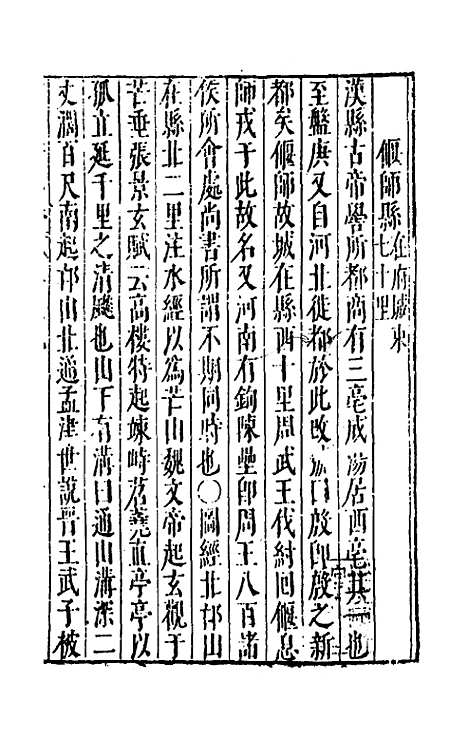 偃師縣在府𠫵東七十里
漢縣古帝嚳所都商有三亳成湯居西亳其一也
至盤庚又自河北徙都於此改號曰殷即殷之新
都矣偃師故城在縣西十里周武王伐紂回偃息
師戎于此故名又河南有鉤陳壘即周王八百諸
侯所會處尚書所謂不期同時也○圖經北邙山
在縣北二里注水經以為芒山魏文帝起玄觀于
芒垂張景玄賦云高樓特起竦峙岧嶤直亭亭以
孤立延千里之清飈也山下有溝曰通山溝深二
丈濶百尺南起邙山北通孟津世說晉王武子被